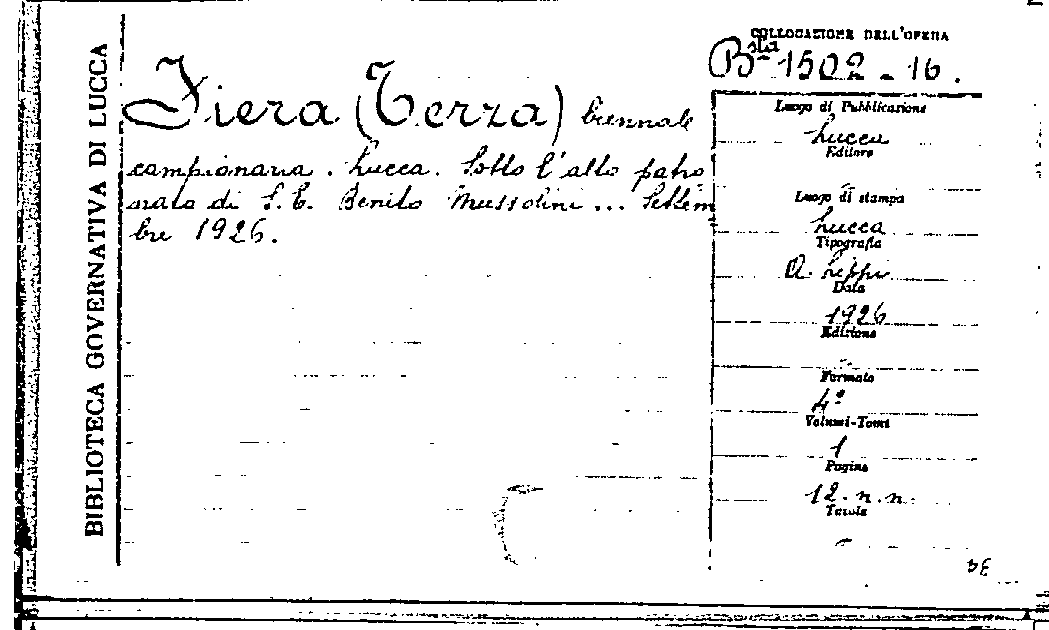 BIBLIOTECA GOVERNATIVA DI LUCCA
COLLOCAZIONE DELL'OPERA
Bsta 1502 - 16.
Fiera (Terza) biennale
campionaria. Lucca. Sotto l'alto patro
nato di S. E. Benito Mussolini ... Settem
bre 1926.
Luogo di Pubblicazione
Lucca
Editore
Luogo di stampa
Lucca
Tipografia
A. Lippi
Data
1926
Edizione
Formato
4º
Volumi-Tomi
1
Pagine
12. n. n.
Tavole